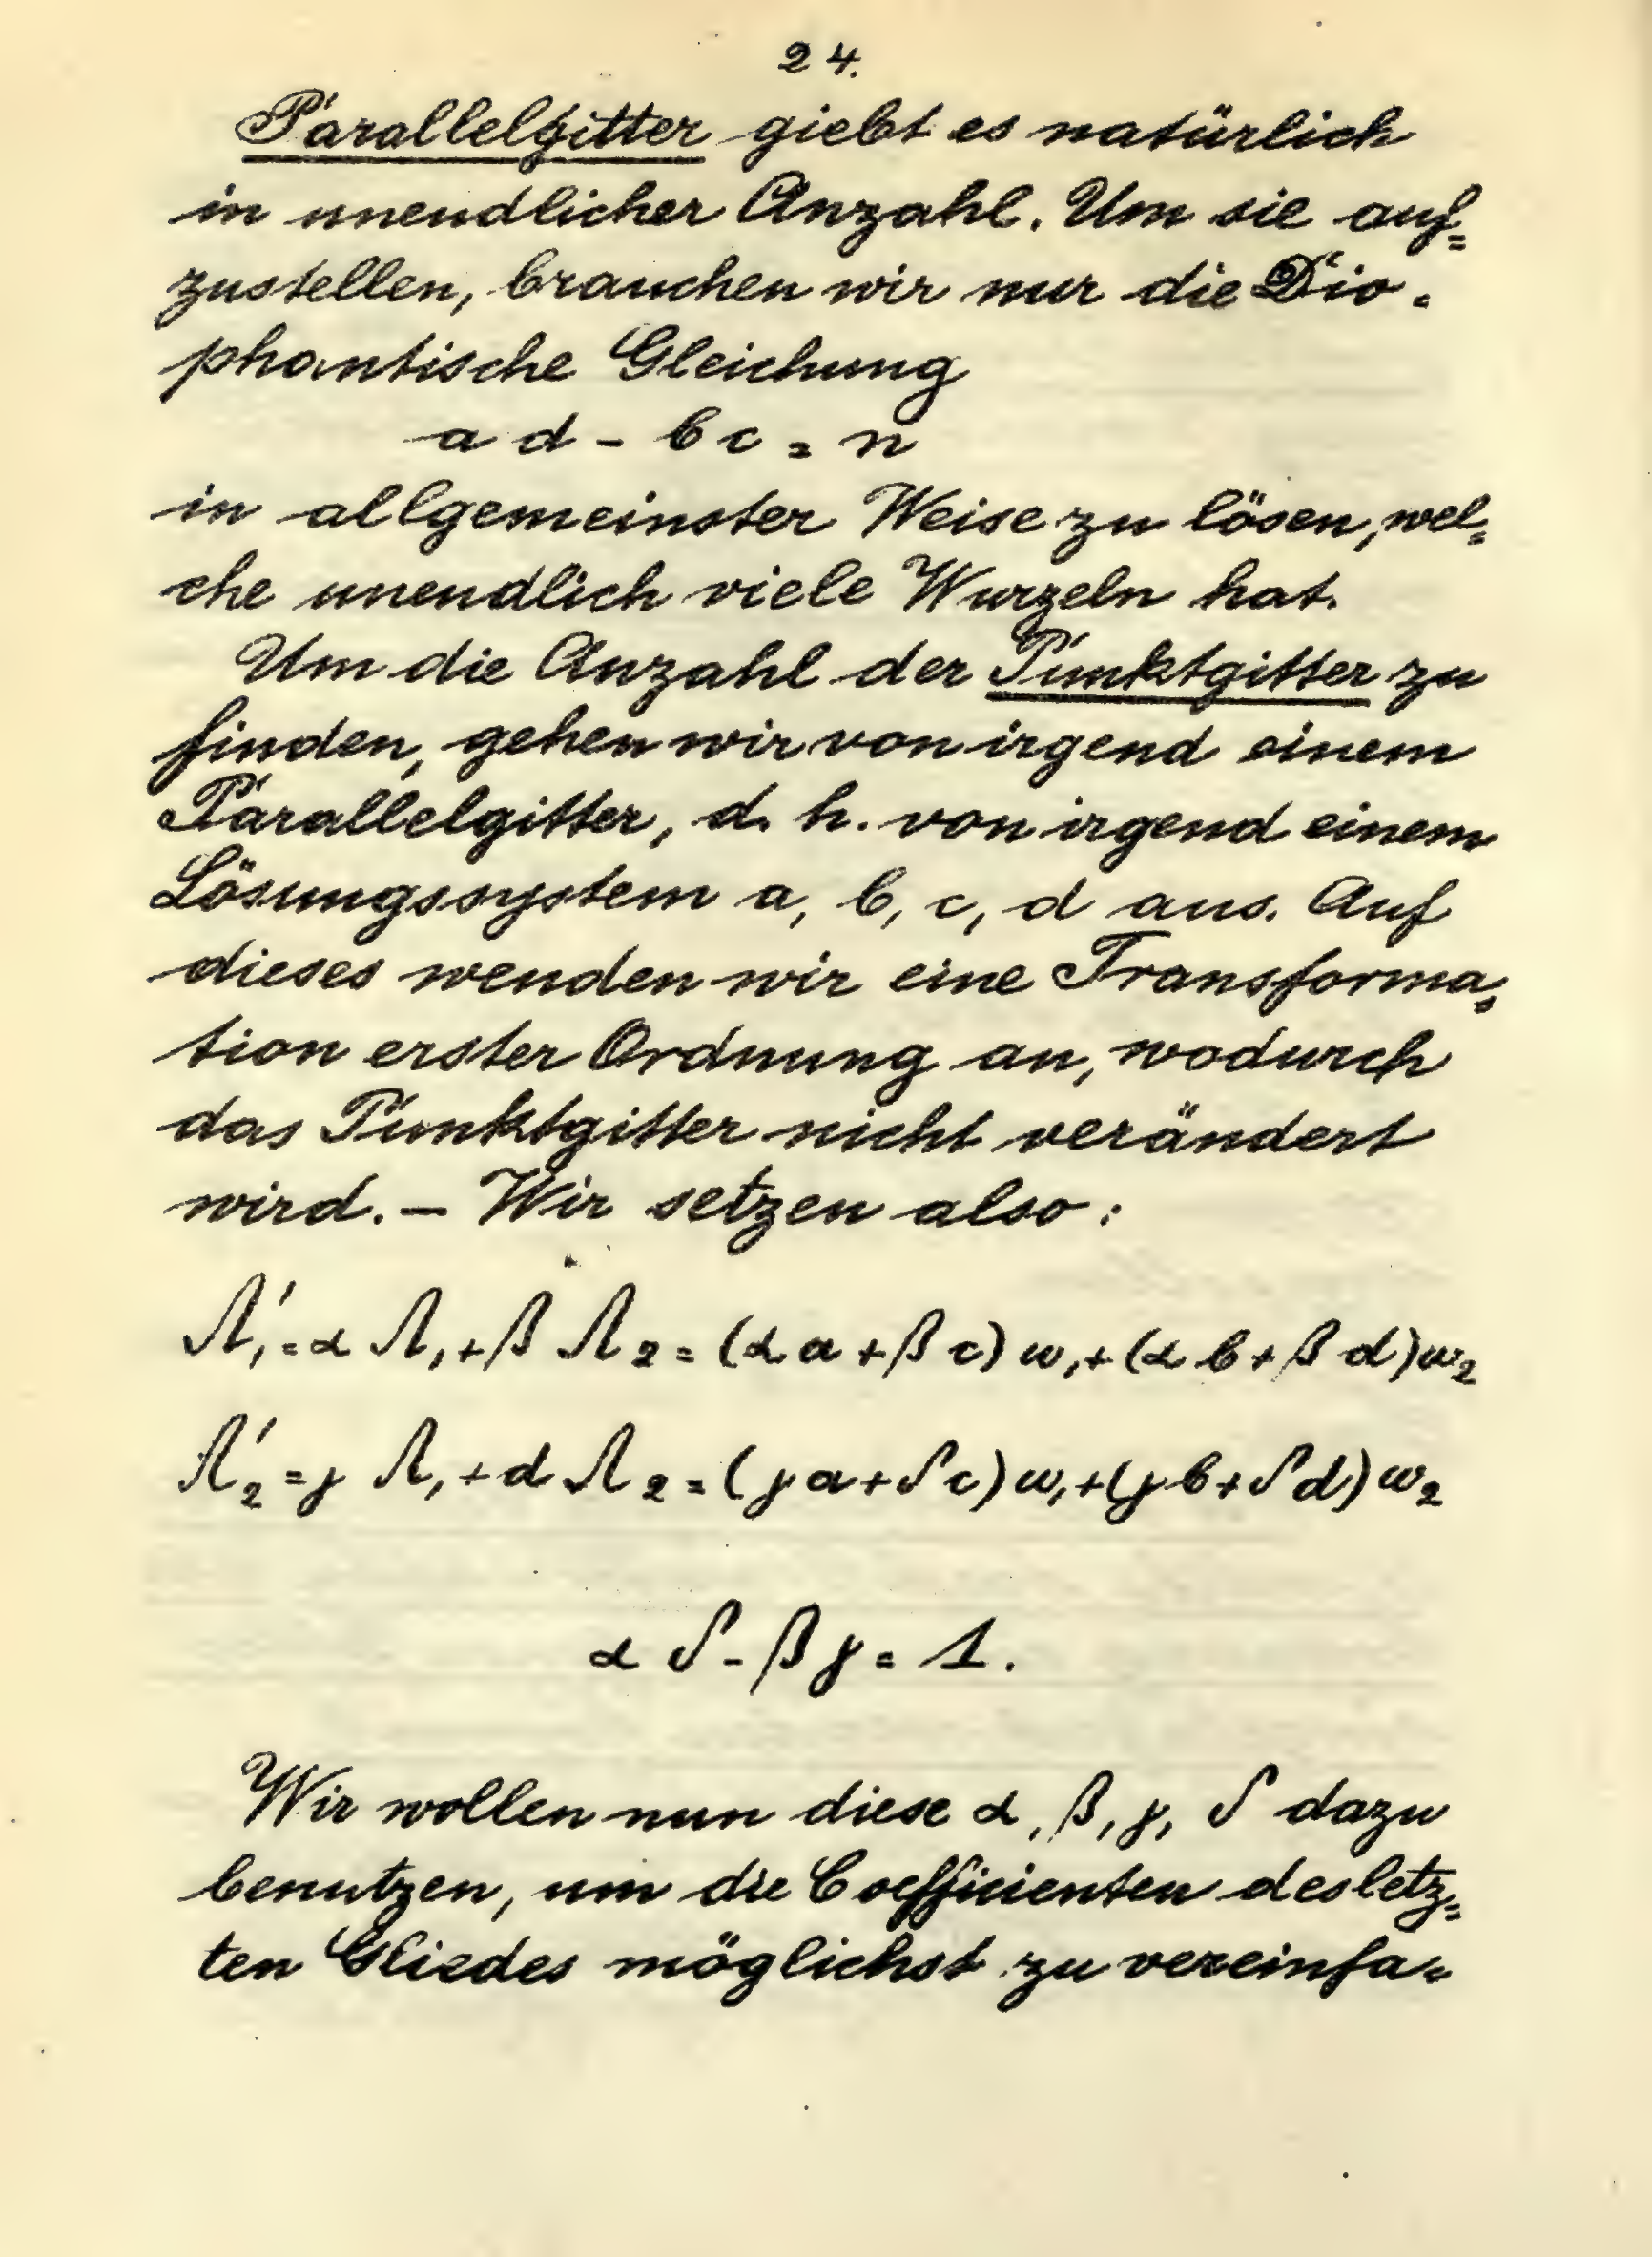 24.
Parallelgitter giebt es natürlich
in unendlicher Anzahl. Um sie auf=
zustellen, brauchen wir nur die Dio-
phantische Gleichung
a d - b c = n
in allgemeinster Weise zu lösen, wel=
che unendlich viele Wurzeln hat.
Um die Anzahl der Punktgitter zu
finden, gehen wir von irgend einem
Parallelgitter, d. h. von irgend einem
Lösungssystem a, b, c, d aus. Auf
dieses wenden wir eine Transforma=
tion erster Ordnung an, wodurch
das Punktgitter nicht verändert
wird. – Wir setzen also:
Λ₁' = α Λ₁ + β Λ₂ = (α a + β c) ω₁ + (α b + β d) ω₂
Λ₂' = γ Λ₁ + d Λ₂ = (γ a + δ c) ω₁ + (γ b + δ d) ω₂
α δ - β γ = 1.
Wir wollen nun diese α, β, γ, δ dazu
benutzen, um die Coefficienten des letz=
ten Gliedes möglichst zu vereinfa=